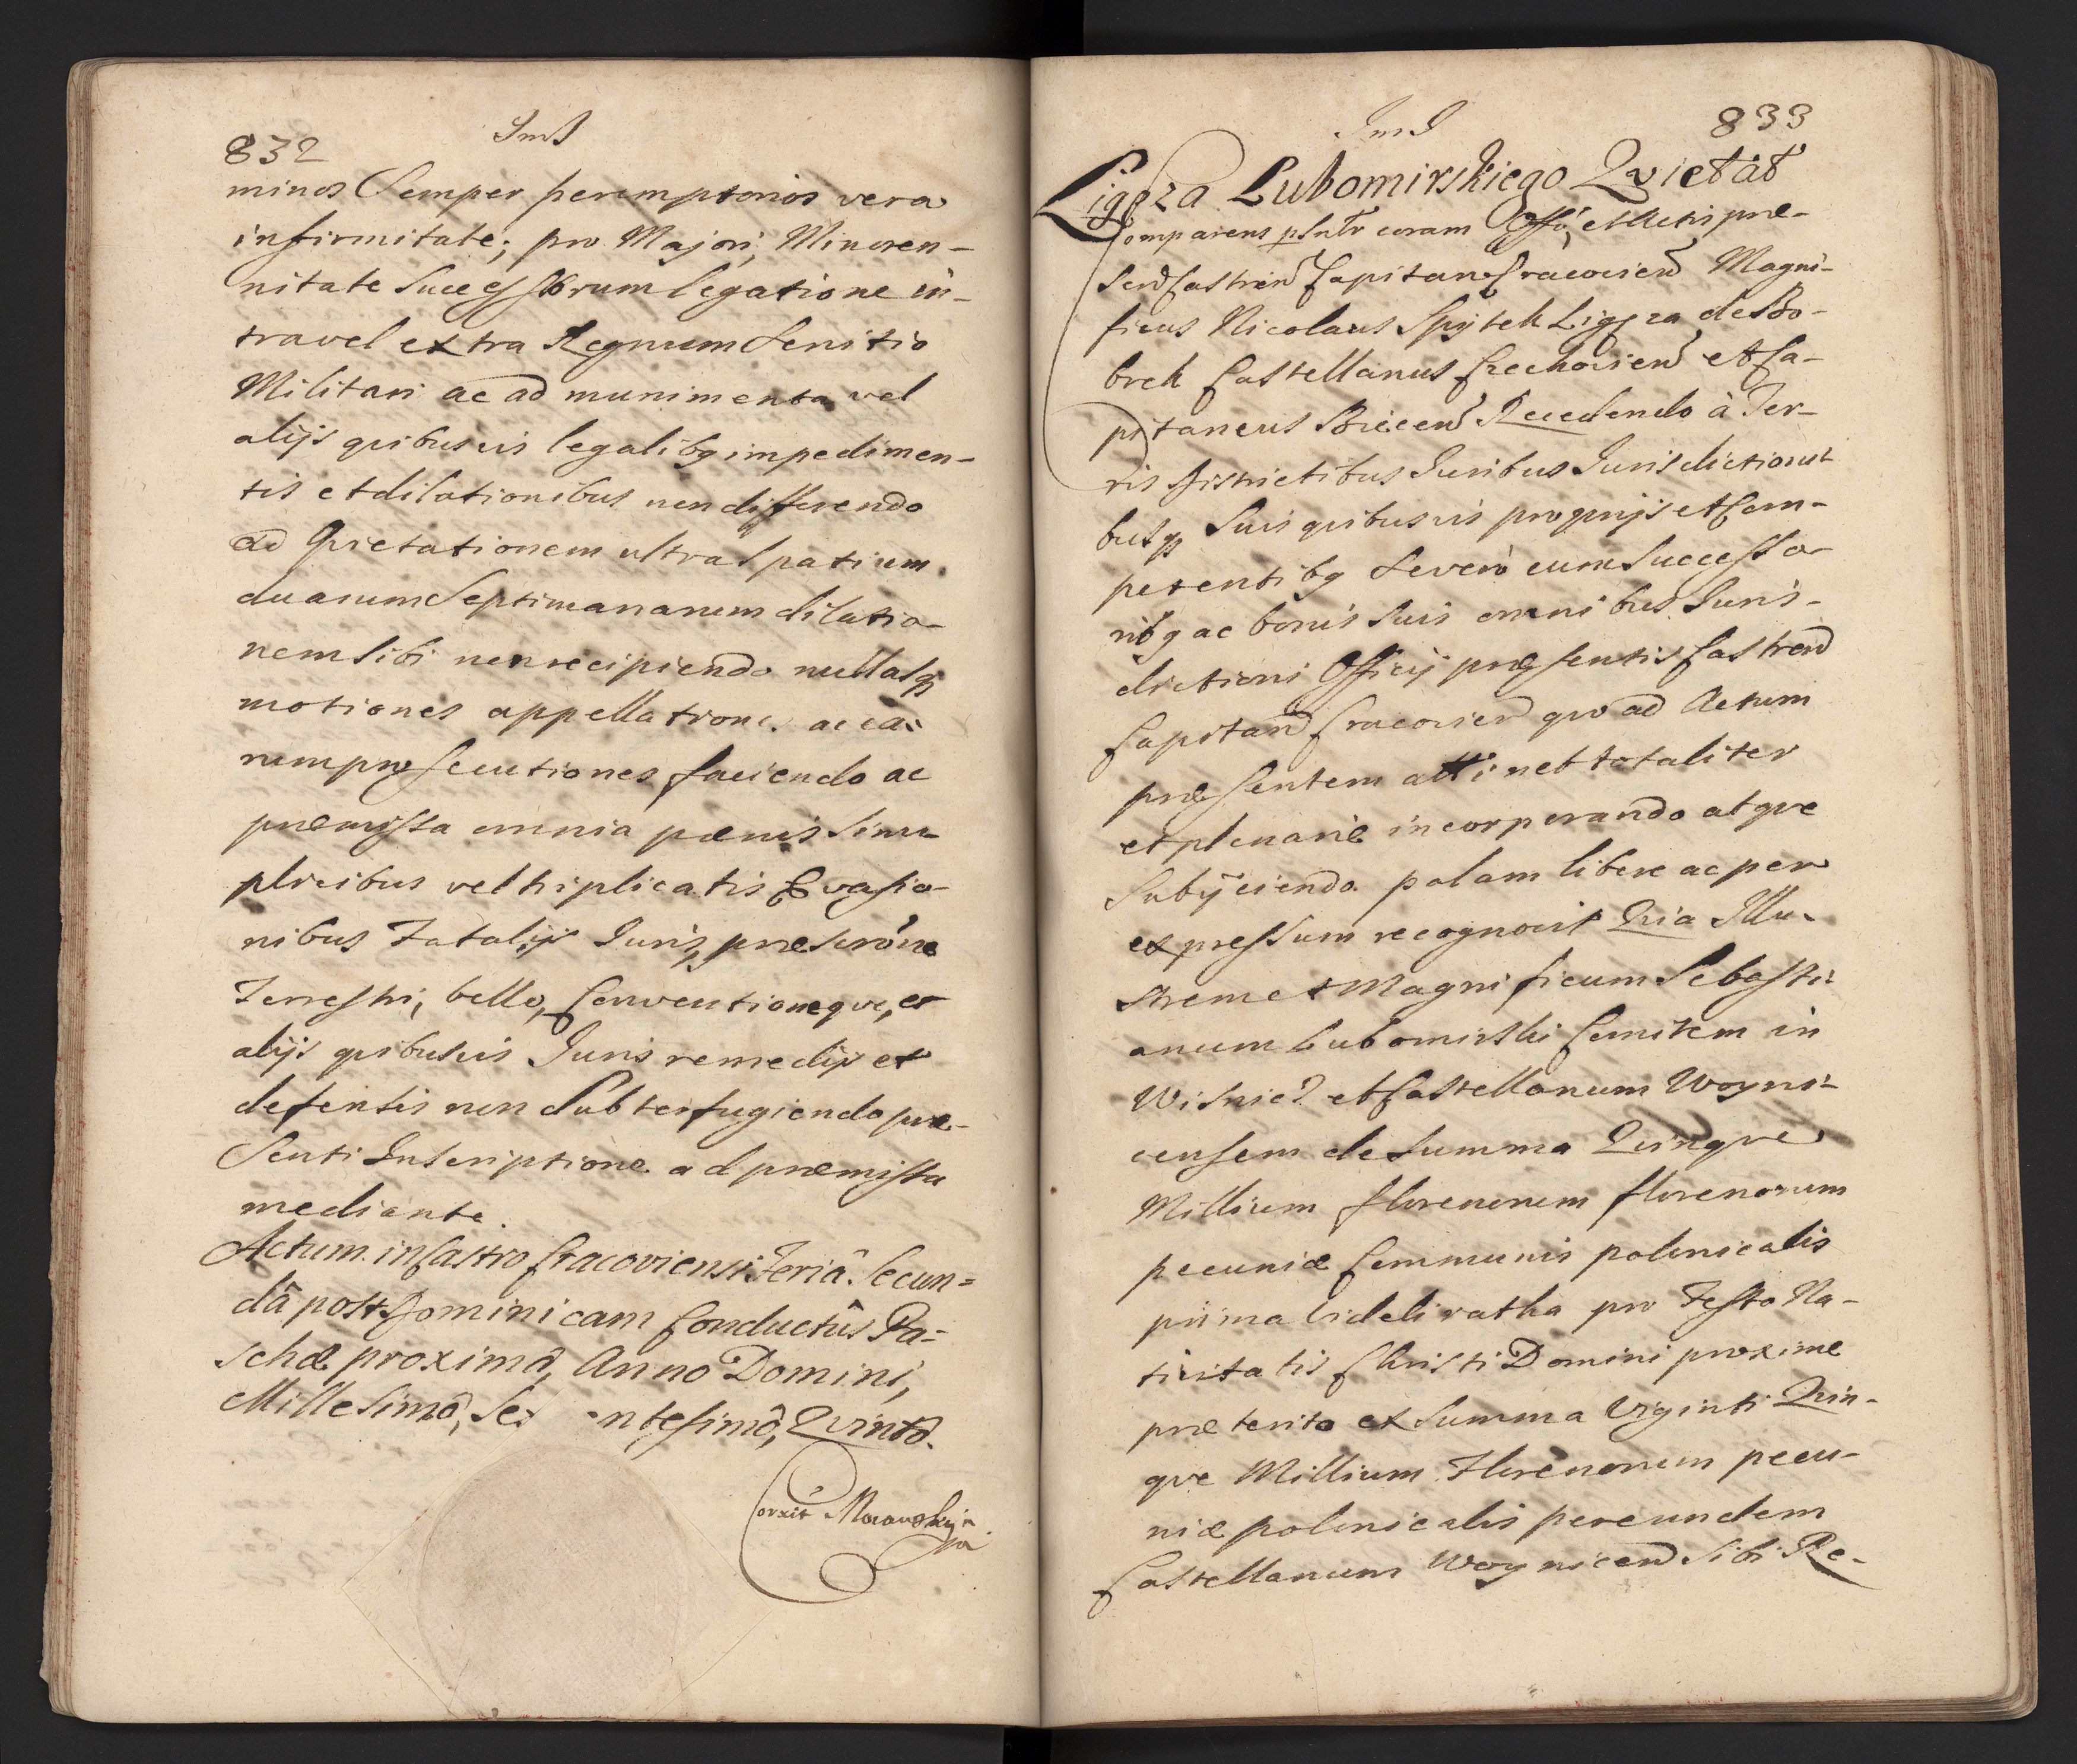 832
minos Semper peremptorios vera
infirmitate; pro Majori, Minoren-
nitate Successorum legatione in-
travel extra Regnum Servitio
Militari ac ad munimenta vel
alijs quibusvis legalibq impedimen-
tis et dilationibus non differendo
ad Quietationem ultra Spatium
duarum Septimanarum dilatio-
nem Sibi non recipiendo nullasq
motiones appellationes ac ea-
rum prosecutiones faciendo ac
præmissa omnia pænis Sim-
plicibus vel triplicatis Evasio-
nibus Fatalijs Juris, præscrõne
Terrestri, bello, Conventioneqve, et
alijs quibusvis Juris remedijs et
defensis non Subterfugiendo præ-
Senti Inscriptione ad præmissa
mediante.
Actum in Castro Cracoviensi Feriâ Secun=
dâ post Dominicam Conductûs Pa=
schæ proximâ, Anno Domini,
Millesimô, Sex ntesimô, Qvintô.
Corxit Morawsky
833
Ligęza Lubomirskiego Qvietat
Comparens psnltr coram Offõ, et Actis præ-
Sen Castren Capitan Cracovien Magni-
ficus Nicolaus Spytek Ligęza de Bo-
brek Castellanus Czechovien et Ca-
pitaneus Biecen Recedendo à Ter-
ris Districtibus Juribus Jurisdictioni-
busq Suis quibusvis proprijs et Com-
petentibq Severo cum Successo-
ribq ac bonis Suis omnibus Juris-
dictioni Officij præsentis Castren
Capitan Cracovien quo ad Actum
præsentem attinet totaliter
et plenarie incorporando atqve
Subijciendo palam libere ac per
expressum recognovit Quia Illu-
strem et Magnificum Sebasti-
anum Lubomirski Comitem in
Wisnic? et Castellanum Woyni-
censem de Summa Quinqve
Millium florenorum florenorum
pecuniæ Communis polonicalis
prima videli ratha pro Festo Na-
tivitatis Christi Domini proxime
præterito ex Summa Viginti Quin-
qve Millium Florenorum pecu-
niæ polonicalis per eundem
Castellanum Woynicen Sibi Re-